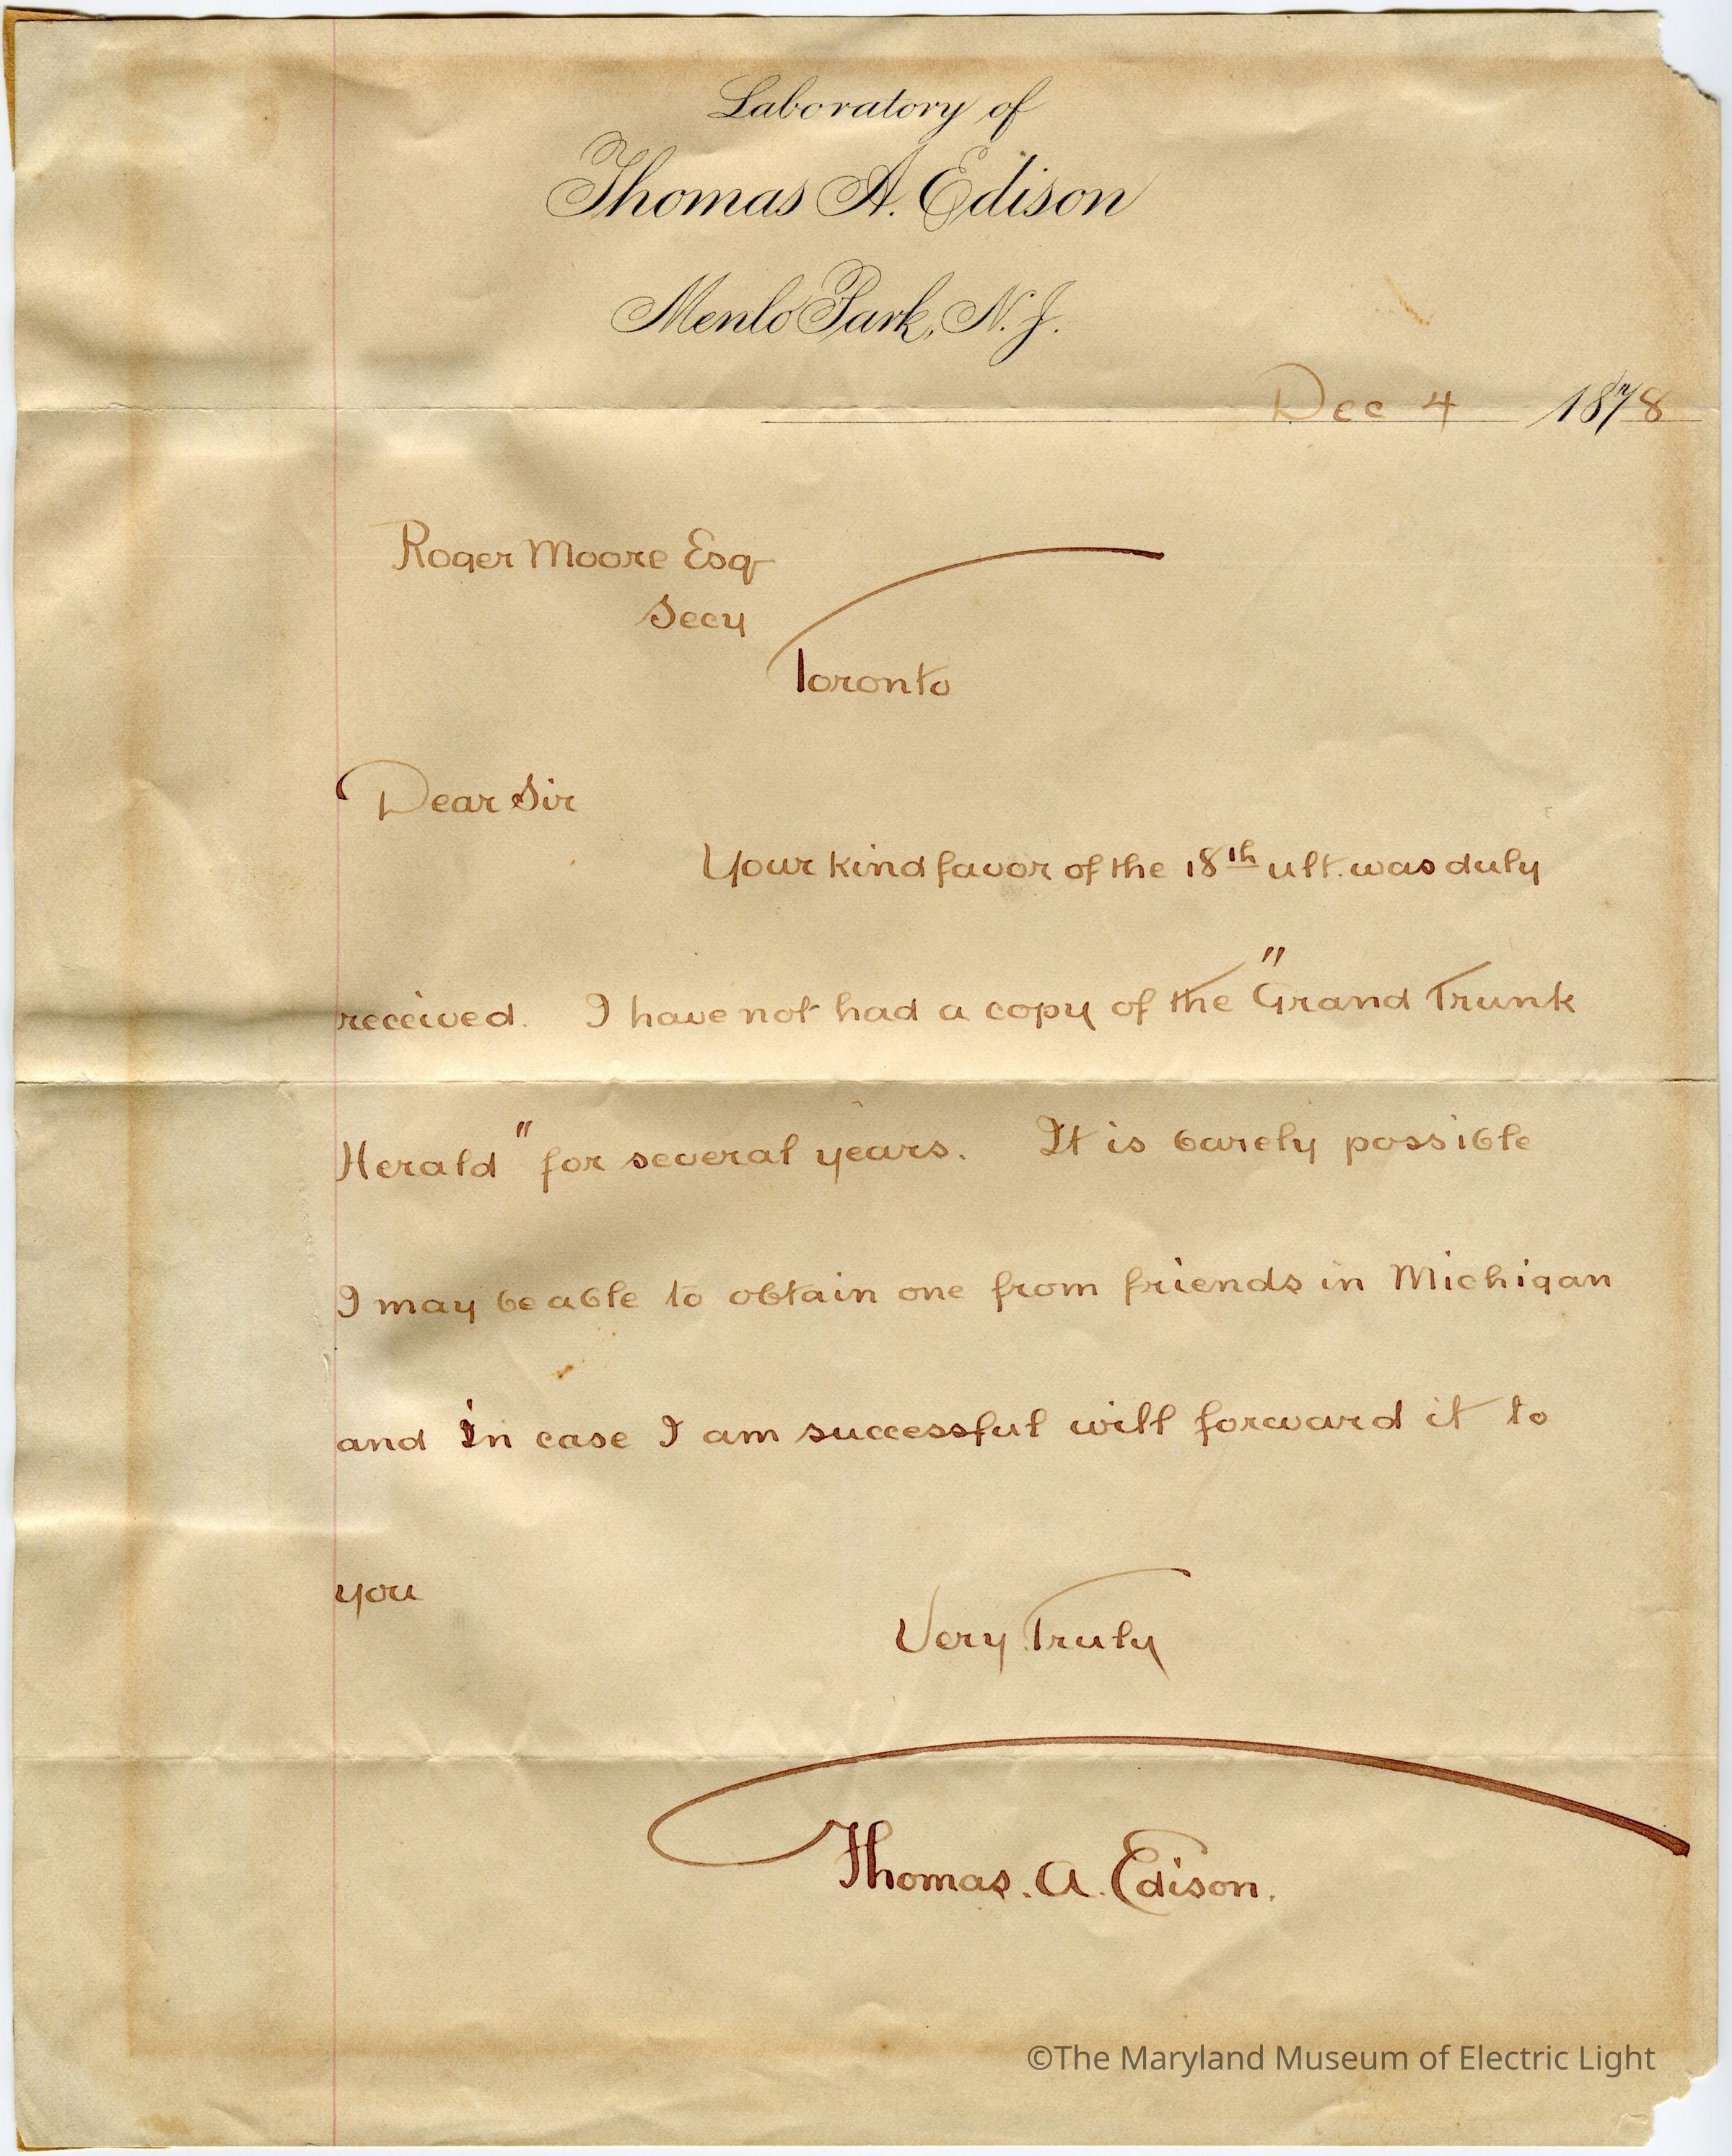 Laboratory of
Thomas A. Edison
Menlo Park, N.J.
Dec 4 1878
Roger Moore Esq
Secy
Toronto
Dear Sir
Your kind favor of the 18th ult. was duly
received. I have not had a copy of the "Grand Trunk
Herald" for several years. It is barely possible
I may be able to obtain one from friends in Michigan
and in case I am successful will forward it to
you
Very Truly
Thomas. A. Edison.
©The Maryland Museum of Electric Light